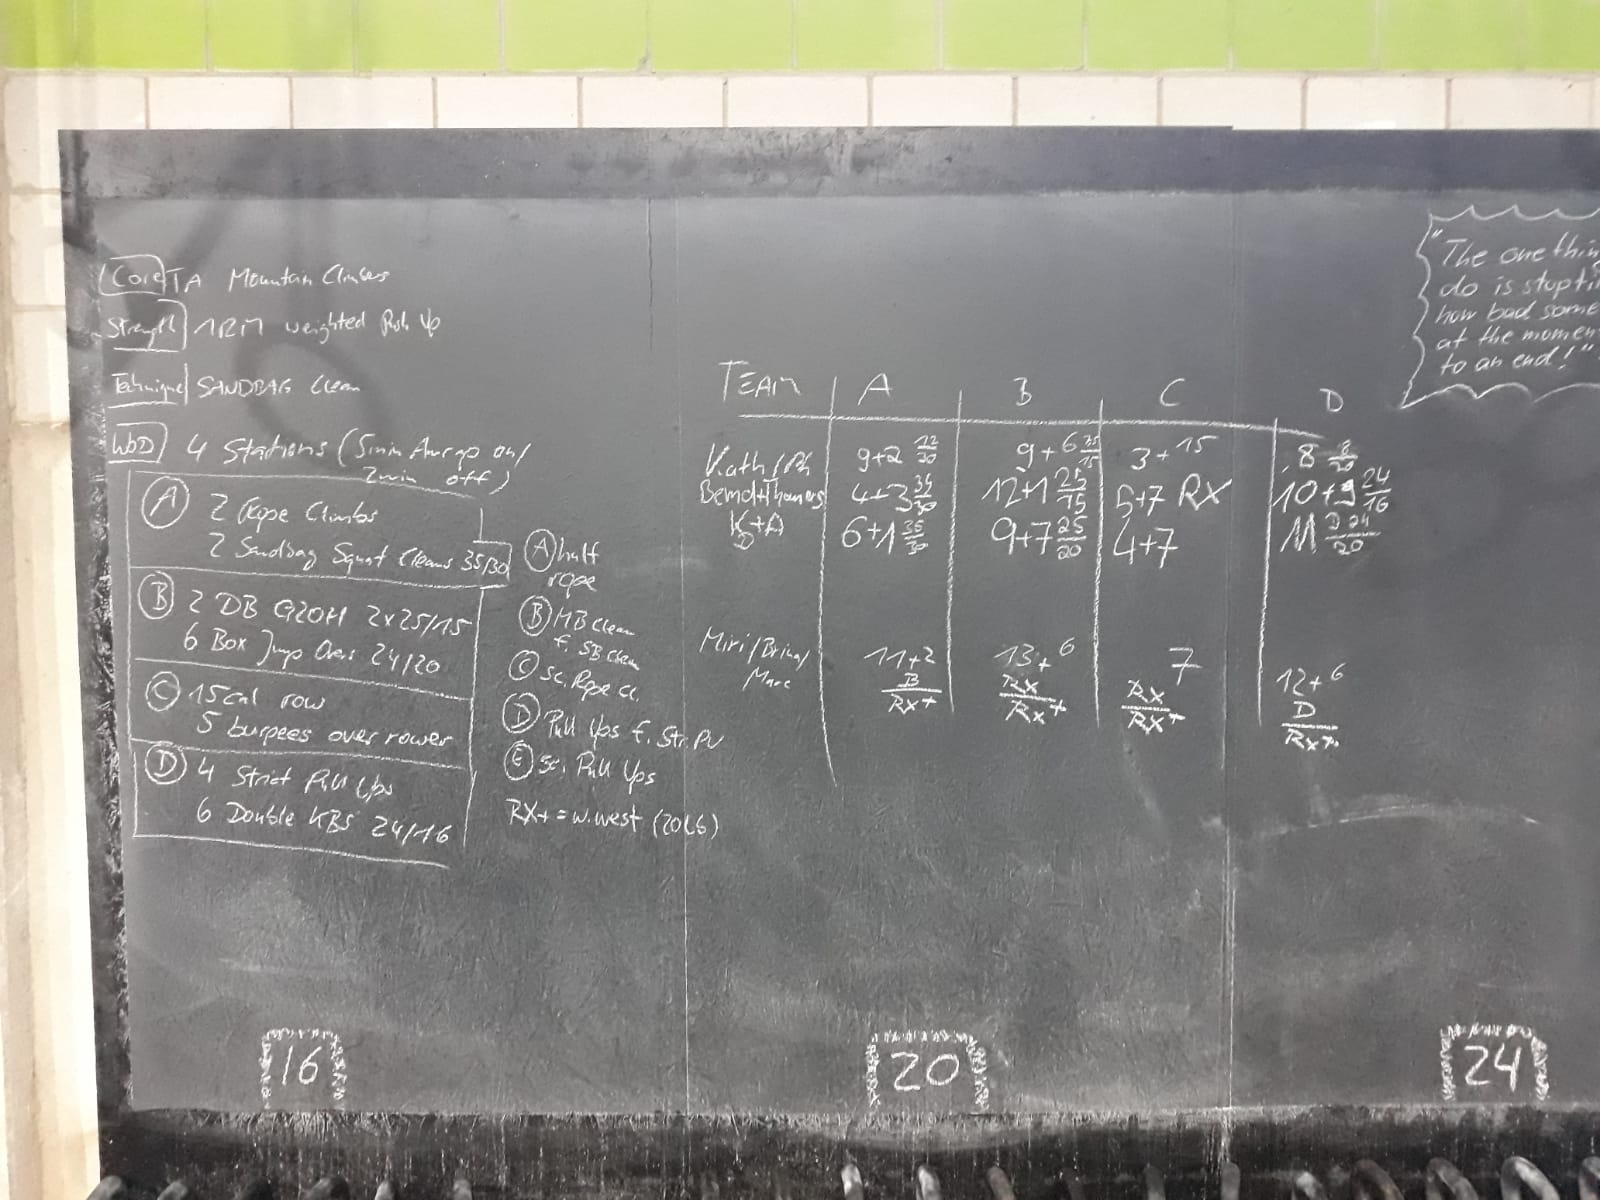 Core TA Mountain Climbers
Strength 1RM weighted Push Up
Technique SANDBAG Clean
WOD 4 Stations (5min Amrap on/
2min off)
A 2 Rope Climbs
2 Sandbag Squat Cleans 35/30
B 2 DB G2OH 2x25/15
6 Box Jump Overs 24/20
C 15 cal row
5 burpees over rower
D 4 Strict Pull Ups
6 Double KBS 24/16
A half
rope
B MB Clean
f. SB Clean
C Sc. Rope cl.
D Pull Ups f. Str. PU
E Sc. Pull Ups
RX+ = w.west (20LB)
TEAM A B C D
Kath/ 9+2 12/20 9+6 3+15 8 8/20
Bernd+Thomas 4+3 35/30 12+1 25/15 5+7 RX 10+9 24/16
K+A 6+1 35/30 9+7 25/20 4+7 11 D 24/20
Miri/Brina/
Marc
11+2 B/RX+ 13+6 RX/RX+ 7 RX/RX+ 12+6 D/RX+
"The one thin
do is stop
how bad some
at the momen
to an end!"
16
20
24